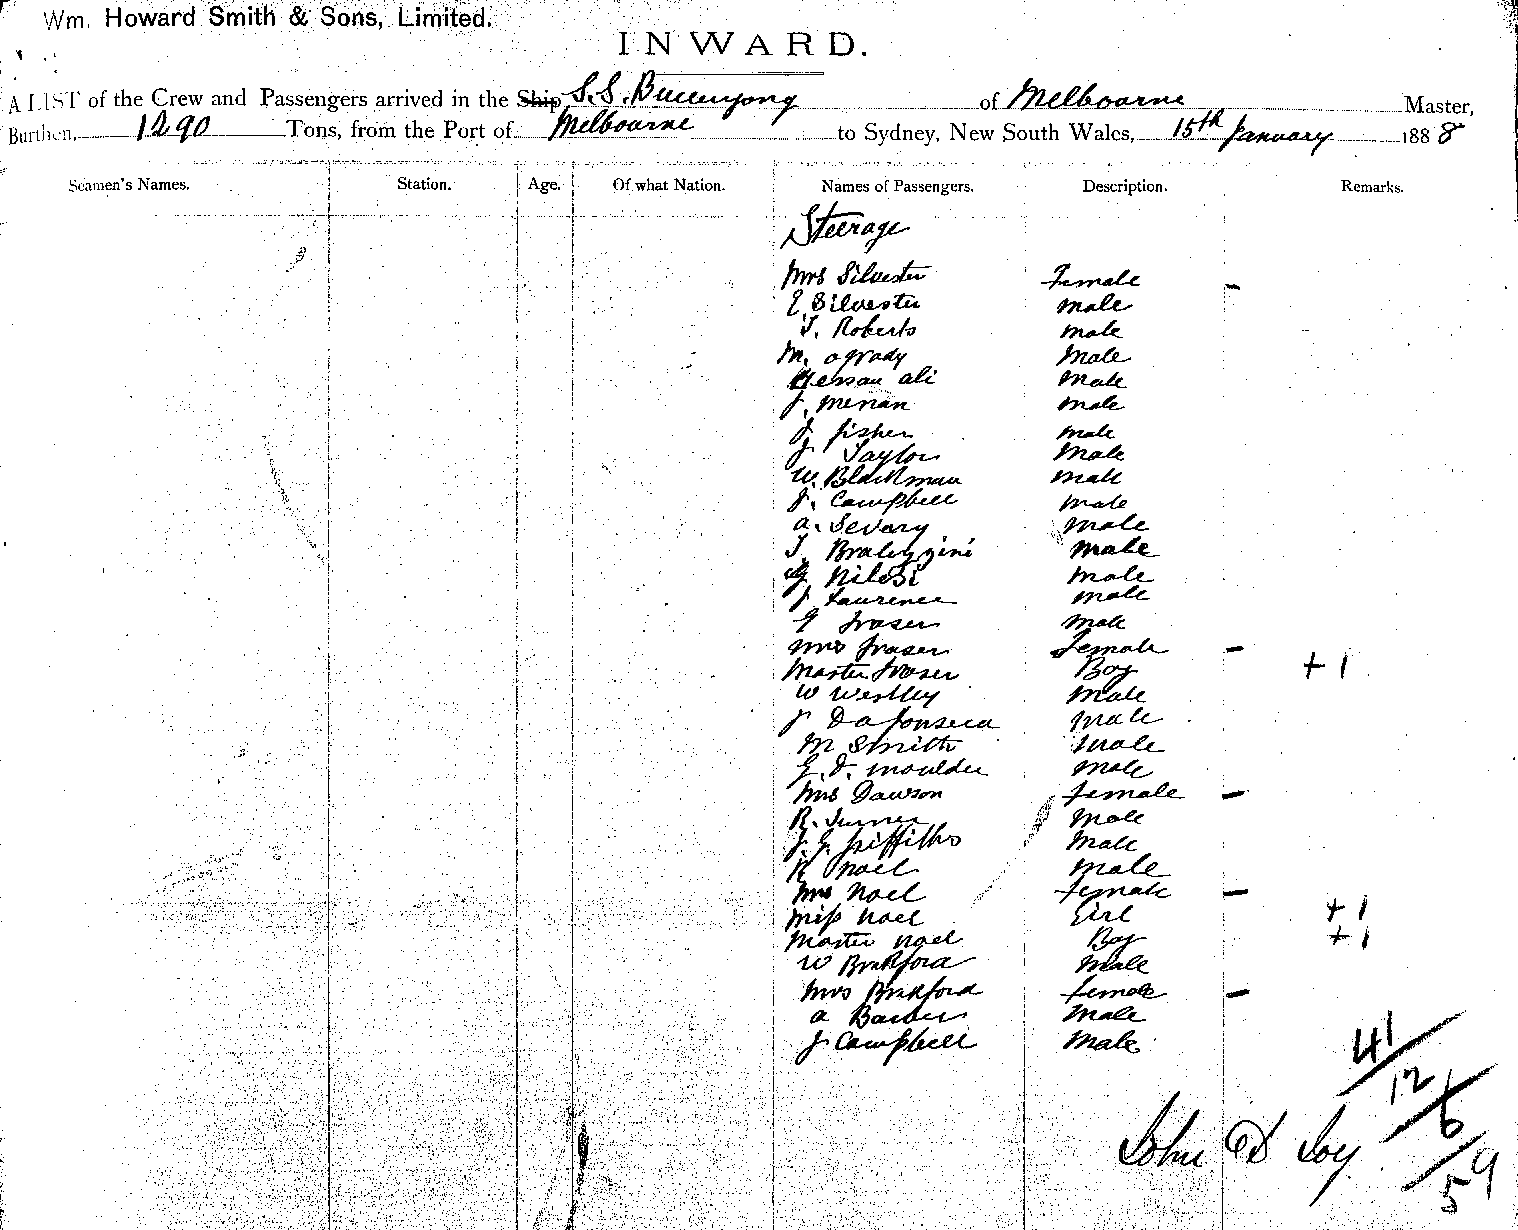 Wm. Howard Smith & Sons, Limited.
INWARD.
A LIST of the Crew and Passengers arrived in the Ship S.S. Buninyong of Melbourne Master,
Burthen, 1290 Tons, from the Port of Melbourne to Sydney, New South Wales, 15th January 1888
Seamen's Names. Station. Age. Of what Nation. Names of Passengers. Description. Remarks.
Steerage
Mrs Silvester Female -
E Silvester male
T. Roberts male
M. ogrady Male
Hessan ali Male
J. Menan male
J fisher male
J Taylor Male
W. Blackman male
J. Campbell male
a. Sevary male
J male
G male
J Laurence male
G fraser male
mrs fraser Female -
Master fraser Boy + 1
W Westley Male
J Da fonseca male
M Smith male
G. D. moulder male
Mrs Dawson Female -
R. Turner Male
J. G. Griffiths Male
R Noel male
Mrs Noel Female -
Miss Noel Girl + 1
Master Noel Boy + 1
W Bradford male
Mrs Bradford female -
a Barber Male
J Campbell Male
41
12
6
59
John Joy